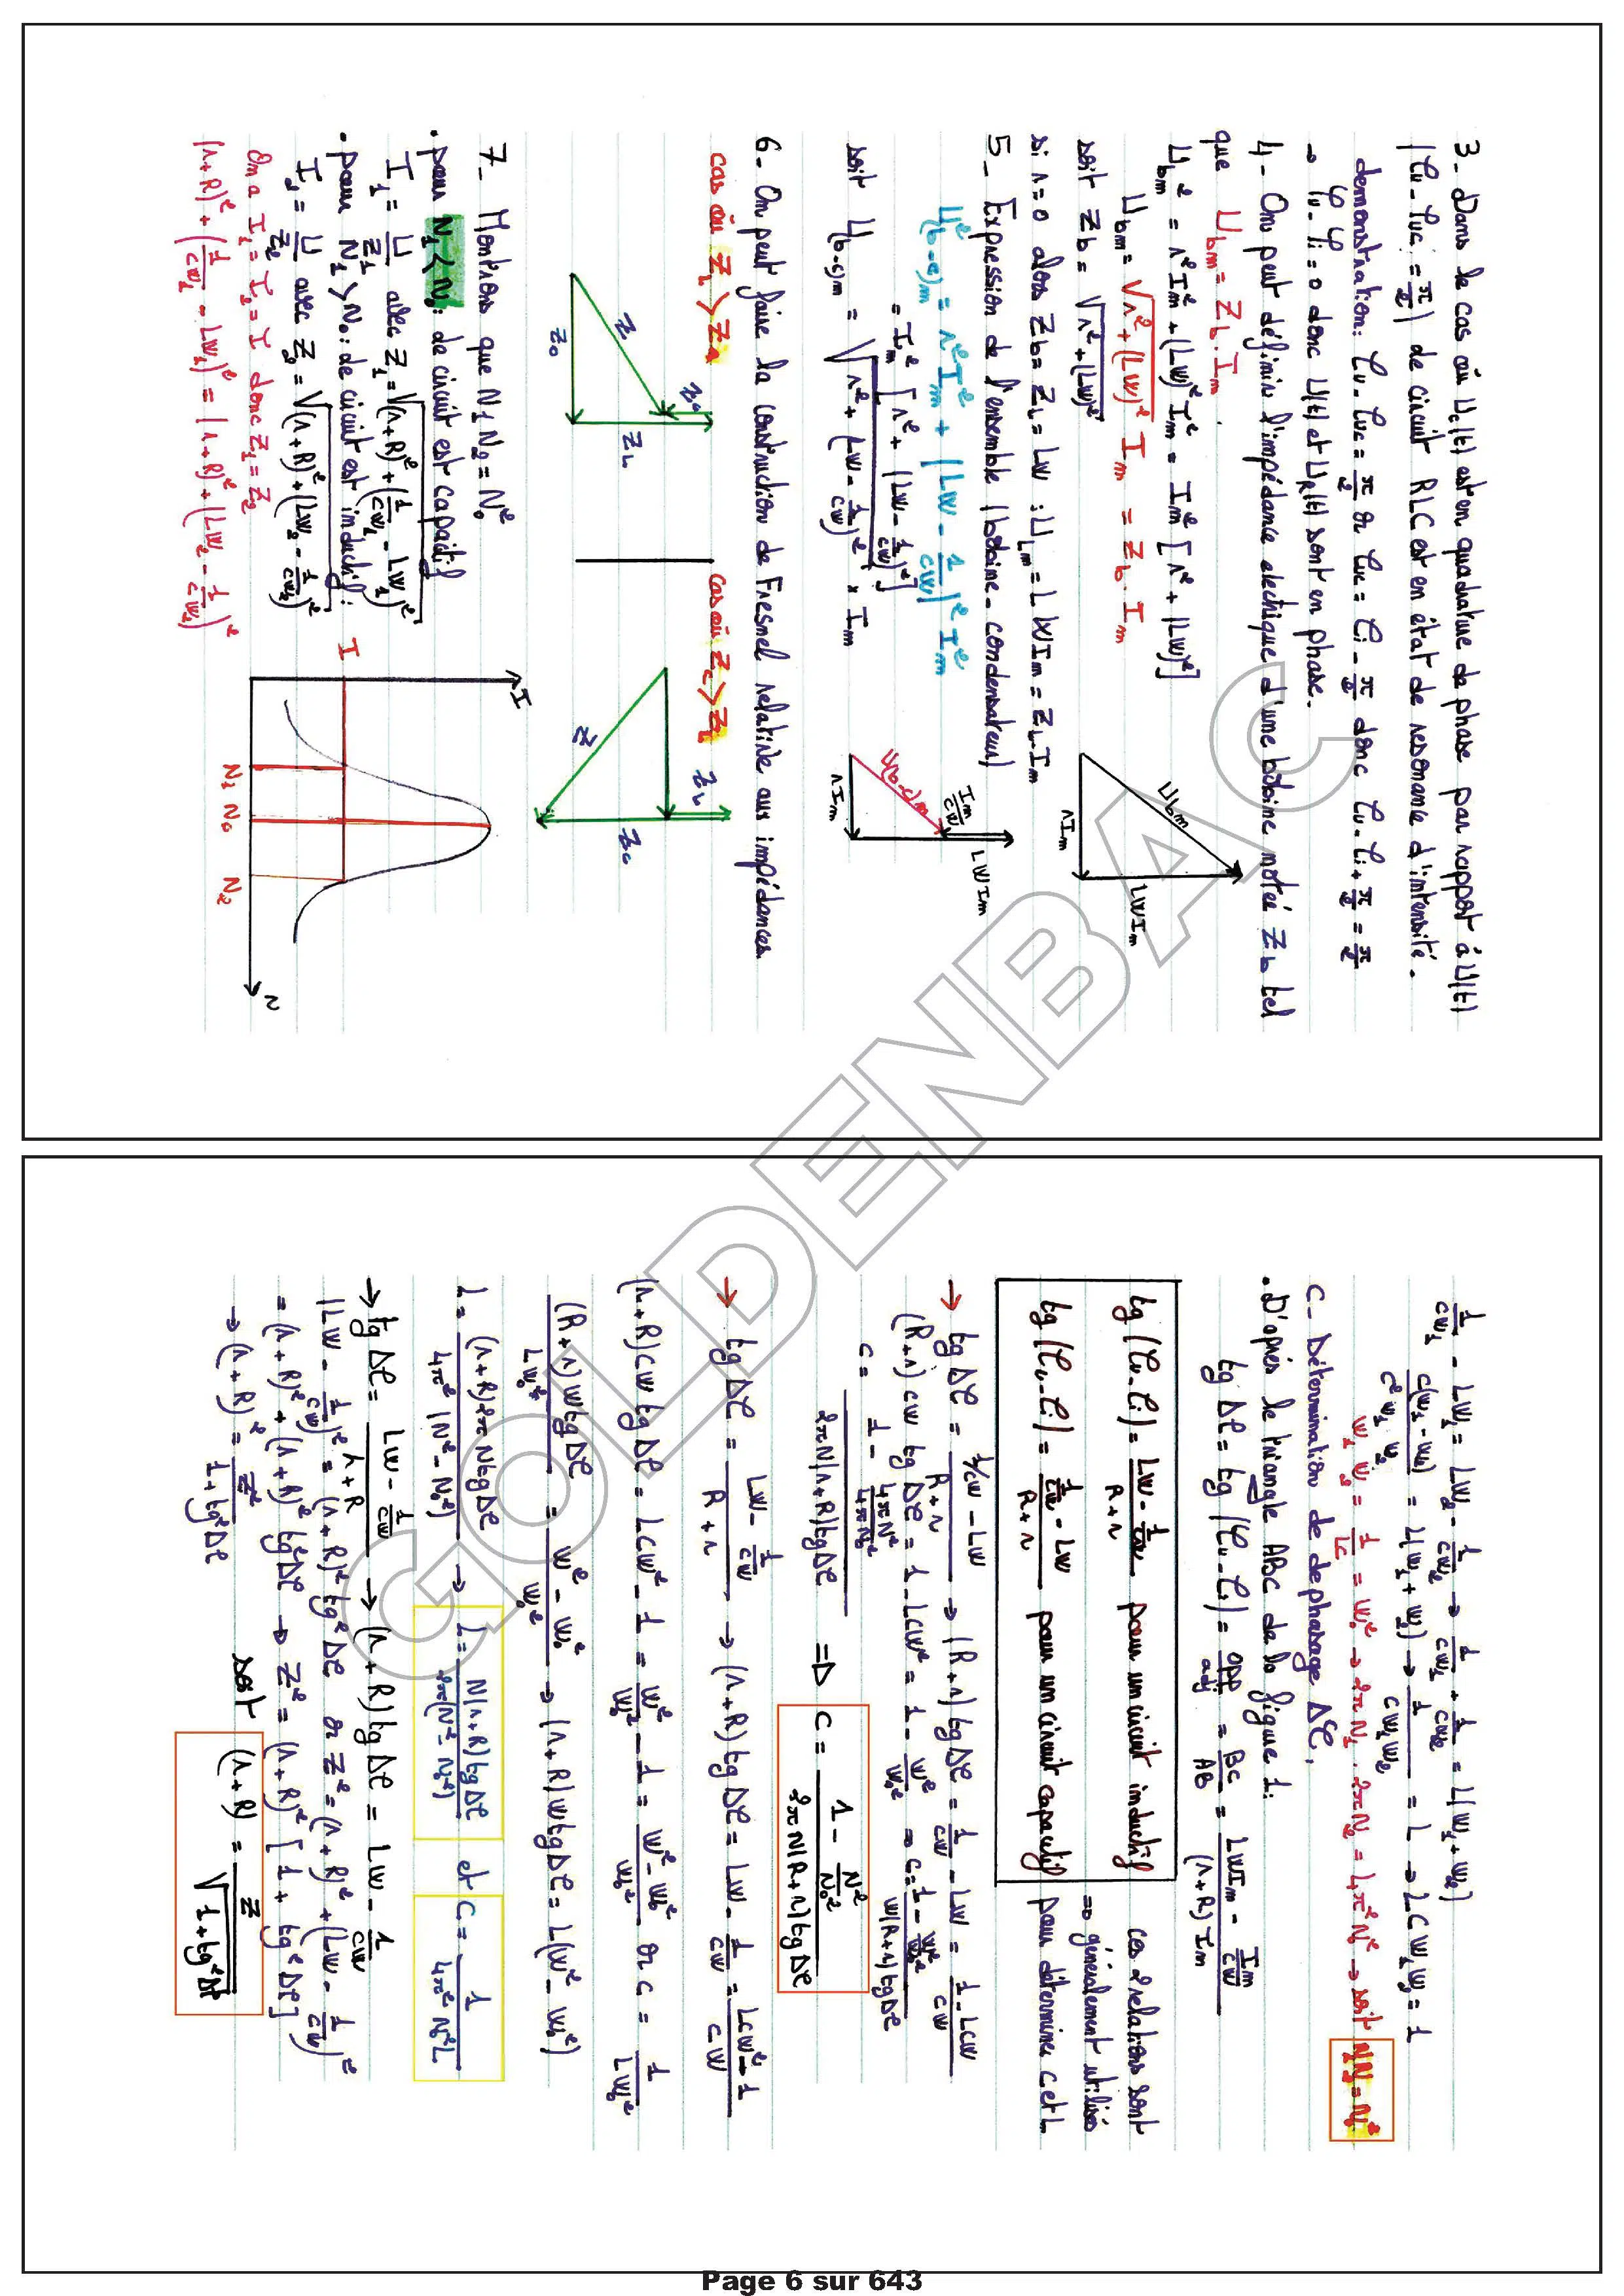 3- Dans le cas où Uc(t) est en quadrature de phase par rapport à U(t)
(φu - φuc = π/2) de circuit RLC est en état de résonance d'intensité.
demonstration: φu - φuc = π/2 or φuc = φi - π/2 donc φu - φi + π/2 = π/2
→ φu - φi = 0 donc U(t) et UR(t) sont en phase.
4- On peut définir l'impédance electrique d'une bobine notée Zb tel
que Ubm = Zb . Im
Ubm² = r²Im² + (Lw)²Im² = Im² [r² + (Lw)²]
Ubm = √r² + (Lw)² Im = Zb . Im
soit Zb = √r² + (Lw)²
si r = 0 alors Zb = ZL = Lw : ULm = LwIm = ZL Im
Ubm
LwIm
rIm
5- Expression de l'ensemble (bobine - condensateur)
U²(b-c)m = r²Im² + (Lw - 1/cw)² Im²
= Im² [r² + (Lw - 1/cw)²]
soit U(b-c)m = √r² + (Lw - 1/cw)² x Im
Im/cw
U(b-c)m
LwIm
rIm
6- On peut faire la construction de Fresnel relative aux impédances.
cas où ZL > Zc
cas où Zc > ZL
Z
ZL
Z
ZL
Zc
7- Montrons que N1 N2 = N0²
• pour N1 < N0 : de circuit est capacitif
I1 = U/Z1 avec Z1 = √(r+R)² + (1/cw1 - Lw1)²
• pour N2 > N0 : de circuit est inductif :
I2 = U/Z2 avec Z2 = √(r+R)² + (Lw2 - 1/cw2)²
On a I1 = I2 = I donc Z1 = Z2
(r+R)² + (1/cw1 - Lw1)² = (r+R)² + (Lw2 - 1/cw2)²
I
I
N1 N0 N2
N
1/cw1 - Lw1 = Lw2 - 1/cw2 → 1/cw1 + 1/cw2 = L(w1 + w2)
= L(w1 + w2) → 1/cw1w2 = L → LCw1w2 = 1
w1 w2 = 1/LC = w0² → 2πN1 . 2πN2 = 4π²N0² → soit N1N2 = N0²
C- Détermination de dephasage Δφ,
• D'après le triangle ABC de la figure 1:
tg Δφ = tg (φu - φi) = opp/adj = BC/AB = LwIm - Im/cw / (r+R) Im
tg (φu - φi) = Lw - 1/cw / R+r pour un circuit inductif
tg (φu - φi) = 1/cw - Lw / R+r pour un circuit capacitif
ces 2 relations sont
⇒ généralement utilisés
pour déterminer C et L
→ tg Δφ = 1/cw - Lw / R+r → (R+r) tg Δφ = 1/cw - Lw = 1 - Lcw / cw
(R+r) cw tg Δφ = 1 - Lcw² = 1 - w²/w0² ⇒ C = 1 - w²/w0² / w(R+r) tg Δφ
C = 1 - 4πN²/4πN0² / 2πN(r+R) tg Δφ ⇒ C = 1 - N²/N0² / 2πN(R+r) tg Δφ
→ tg Δφ = Lw - 1/cw / R+r → (r+R) tg Δφ = Lw - 1/cw = Lcw² - 1 / cw
(r+R) cw tg Δφ = Lcw² - 1 = w²/w0² - 1 = w² - w0² / w0² or C = 1/Lw0²
(R+r) w tg Δφ / Lw0² = w² - w0² / w0² → (r+R) w tg Δφ = L(w² - w0²)
L = (r+R) 2πN tg Δφ / 4π² (N² - N0²) → L = N(r+R) tg Δφ / 2π(N² - N0²) et C = 1 / 4π² N0² L
→ tg Δφ = Lw - 1/cw / r+R → (r+R) tg Δφ = Lw - 1/cw
(Lw - 1/cw)² = (r+R)² tg² Δφ or Z² = (r+R)² + (Lw - 1/cw)² =
= (r+R)² + (r+R)² tg² Δφ → Z² = (r+R)² [1 + tg² Δφ]
→ (r+R)² = Z² / 1 + tg² Δφ soit (r+R) = Z / √1 + tg² Δφ
GOLDENBAC
Page 6 sur 643